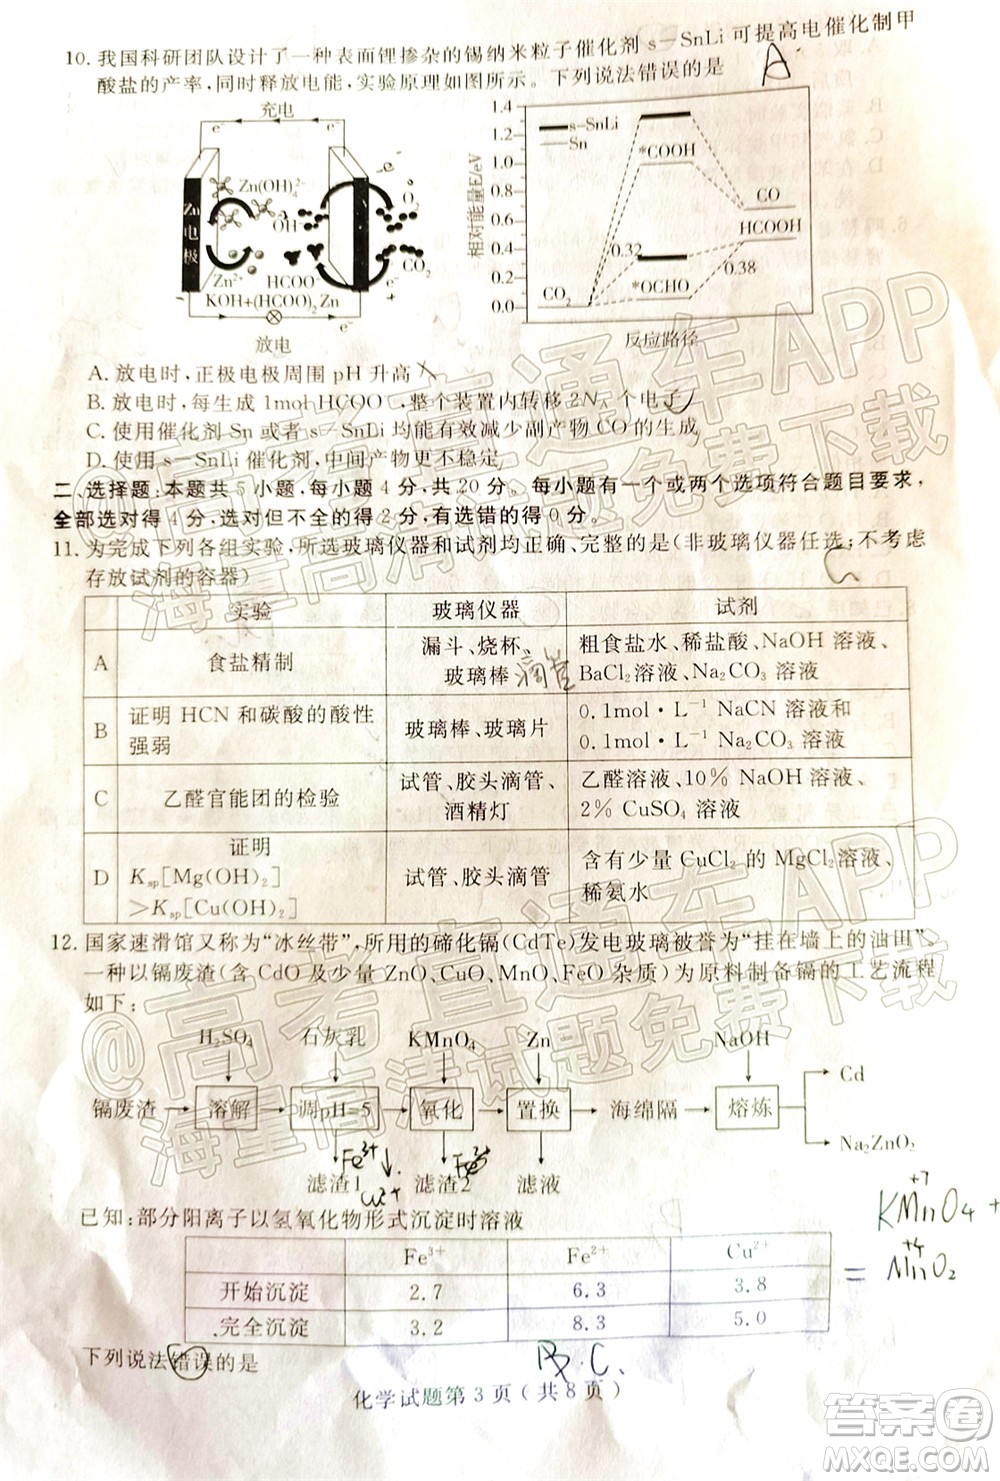 10. 我国科研团队设计了一种表面锂掺杂的锡纳米粒子催化剂 s－SnLi 可提高电催化制甲
酸盐的产率,同时释放电能,实验原理如图所示。下列说法错误的是
A
充电
e⁻ e⁻
Zn电极
Zn(OH)₄²⁻
OH⁻
O₂
CO₂
Zn²⁺ HCOO⁻
KOH+(HCOO)₂Zn
e⁻ e⁻
放电
相对能量E/eV
1.4
1.2
1.0
0.8
0.6
0.4
0.2
0.0
s-SnLi
Sn
*COOH
CO
HCOOH
0.32
0.38
CO₂
*OCHO
反应路径
A. 放电时,正极电极周围 pH 升高
B. 放电时,每生成 1mol HCOO⁻,整个装置内转移 2Nₐ 个电子
C. 使用催化剂 Sn 或者 s－SnLi 均能有效减少副产物 CO 的生成
D. 使用 s－SnLi 催化剂,中间产物更不稳定
二、选择题:本题共 5 小题,每小题 4 分,共 20 分。每小题有一个或两个选项符合题目要求,
全部选对得 4 分,选对但不全的得 2 分,有选错的得 0 分。
11. 为完成下列各组实验,所选玻璃仪器和试剂均正确、完整的是(非玻璃仪器任选;不考虑
存放试剂的容器)
C
实验 玻璃仪器 试剂
A 食盐精制 漏斗、烧杯、玻璃棒 滴管 粗食盐水、稀盐酸、NaOH 溶液、BaCl₂溶液、Na₂CO₃ 溶液
B 证明 HCN 和碳酸的酸性强弱 玻璃棒、玻璃片 0.1mol·L⁻¹ NaCN 溶液和 0.1mol·L⁻¹ Na₂CO₃ 溶液
C 乙醛官能团的检验 试管、胶头滴管、酒精灯 乙醛溶液、10% NaOH 溶液、2% CuSO₄ 溶液
D 证明 Ksp[Mg(OH)₂]>Ksp[Cu(OH)₂] 试管、胶头滴管 含有少量 CuCl₂ 的 MgCl₂溶液、稀氨水
12. 国家速滑馆又称为“冰丝带”,所用的碲化镉(CdTe)发电玻璃被誉为“挂在墙上的油田”。
一种以镉废渣(含 CdO 及少量 ZnO、CuO、MnO、FeO 杂质)为原料制备镉的工艺流程
如下:
H₂SO₄ 石灰乳 KMnO₄ Zn NaOH
镉废渣 溶解 调pH=5 氧化 置换 海绵隔 熔炼
Cd
Na₂ZnO₂
滤渣1 滤渣2 滤液
Fe³⁺↓
Cu²⁺
Fe³⁺
已知:部分阳离子以氢氧化物形式沉淀时溶液
+7
KMnO₄+
+4
= MnO₂
Fe³⁺ Fe²⁺ Cu²⁺
开始沉淀 2.7 6.3 3.8
完全沉淀 3.2 8.3 5.0
下列说法错误的是
B. C.
化学试题第 3 页(共 8 页)
@高考直通车APP
海量高清试题免费下载
@高考直通车APP
海量高清试题免费下载
答案圈
MXQE.COM